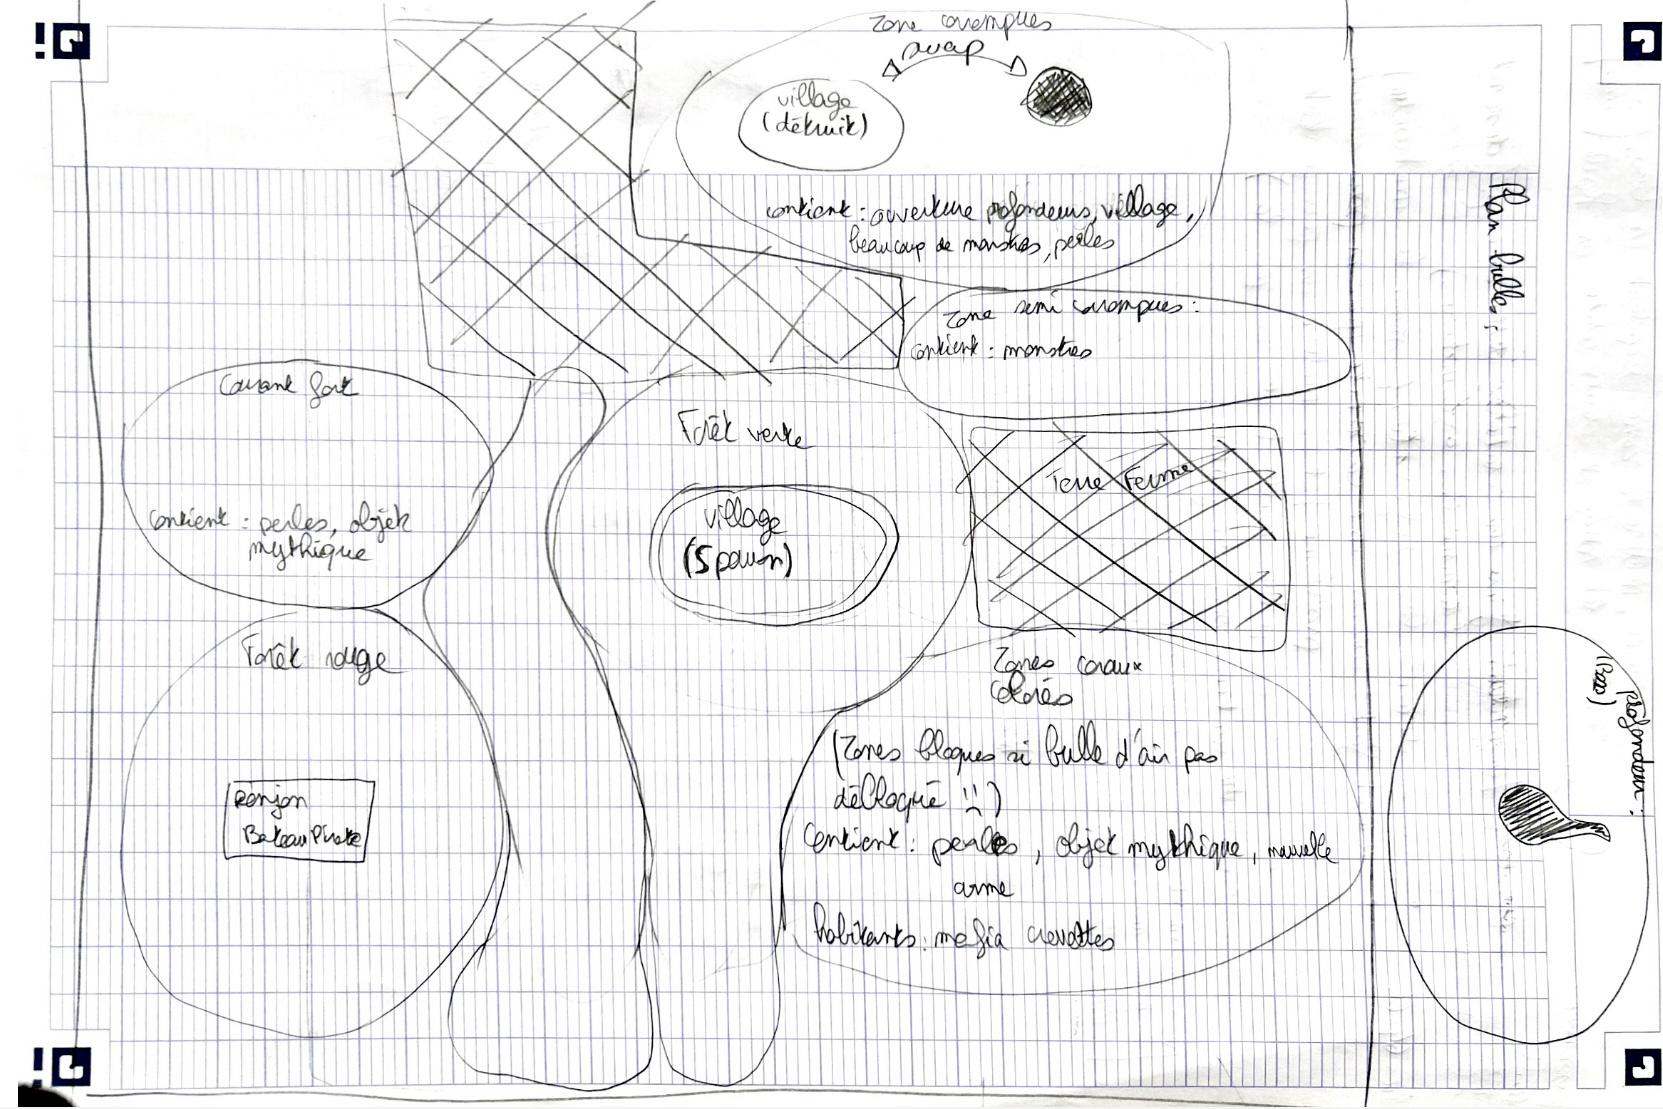 Zone corrompues
swap
village
(détruit)
contient : ouverture profondeurs, village,
beaucoup de monstres, perles
Plan bulles :
Zone semi corrompues :
contient : monstres
Courant fort
contient : perles, objet
mythique
Forêt verte
village
(Spawn)
Terre Ferme
Forêt rouge
Donjon
Bateau Pirate
Zones coraux
colorés
(Zones bloques si bulle d'air pas
débloqué !!)
Contient : perles, objet mythique, nouvelle
arme
habitants : mafia crevettes
profondeur :
(Boss)